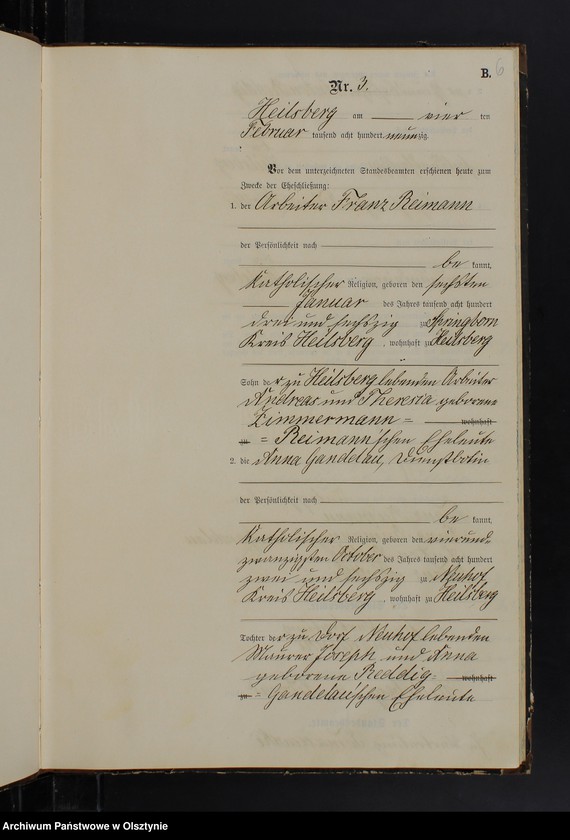 B. 6
Nr. 3.
Heilsberg am vier ten
Februar tausend acht hundert neunzig.
Vor dem unterzeichneten Standesbeamten erschienen heute zum
Zwecke der Eheschließung:
1. der Arbeiter Franz Reimann
der Persönlichkeit nach
be kannt,
katholischer Religion, geboren den sechsten
Januar des Jahres tausend acht hundert
drei und sechszig zu Springborn
Kreis Heilsberg, wohnhaft zu Heilsberg
Sohn der zu Heilsberg lebenden Arbeiter
Andreas und Theresia geborene
Zimmermann = wohnhaft
zu = Reimann'schen Eheleute
2. die Anna Gandelau, Dienstbotin
der Persönlichkeit nach
be kannt,
katholischer Religion, geboren den vierund
zwanzigsten October des Jahres tausend acht hundert
zwei und sechszig zu Neuhof
Kreis Heilsberg, wohnhaft zu Heilsberg
Tochter der zu Dorf Neuhof lebenden
Maurer Joseph und Anna
geborene Reddig = wohnhaft
zu = Gandelau'schen Eheleute
Archiwum Państwowe w Olsztynie